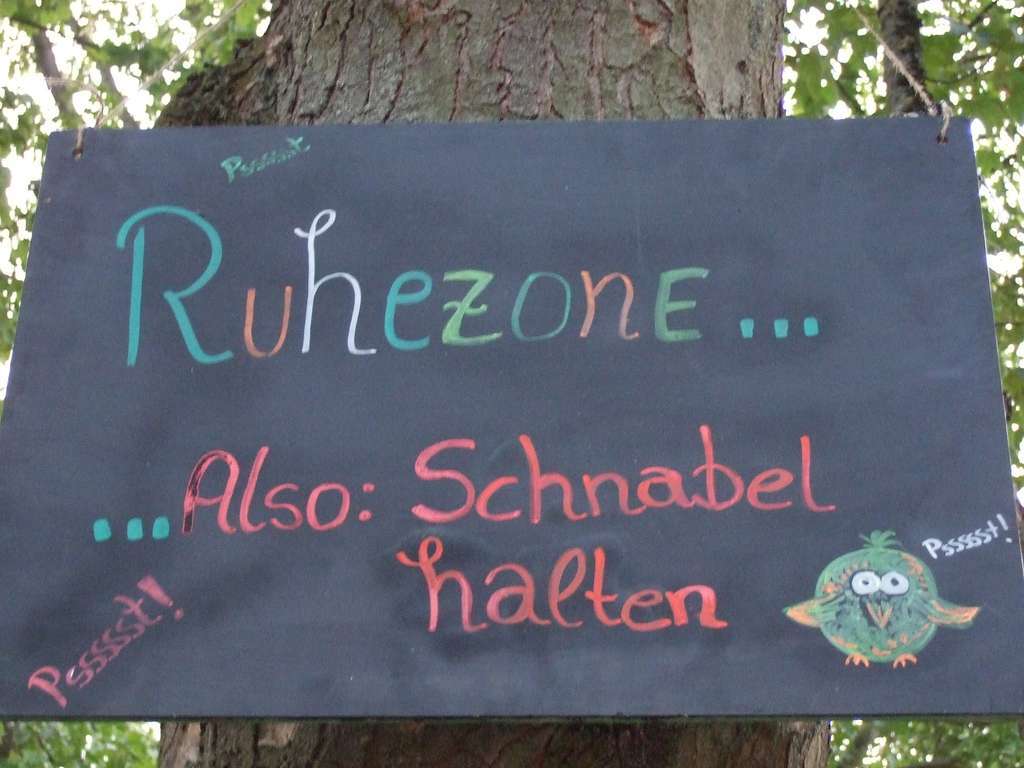 Psssssst
Ruhezone ...
... Also: Schnabel
halten
Psssst!
Psssst!